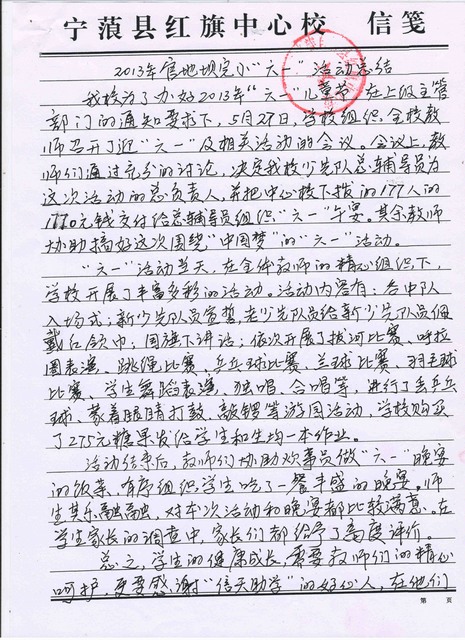 宁蒗县红旗中心校 信笺
2013年官地坝完小“六一”活动总结
我校为了办好2013年“六一”儿童节,在上级主管
部门的通知要求下,5月27日,学校组织全校教
师召开了迎“六一”及相关活动的会议。会议上,教
师们通过充分的讨论,决定我校少先队总辅导员为
这次活动的总负责人,并把中心校下拨的177人的
1770元钱交付给总辅导员组织“六一”午宴。其余教师
协助搞好这次围绕“中国梦”的“六一”活动。
“六一”活动当天,在全体教师的精心组织下,
学校开展了丰富多彩的活动。活动内容有:各中队
入场式;新少先队员宣誓,老少先队员给新少先队员佩
戴红领巾;国旗下讲话;依次开展了拔河比赛、呼拉
圈表演、跳绳比赛、乒乓球比赛、兰球比赛、羽毛球
比赛、学生舞蹈表演,独唱、合唱等,进行了丢乒乓
球、蒙着眼睛打鼓、敲锣等游园活动,学校购买
了275元糖果发给学生和生均一本作业。
活动结束后,教师们协助炊事员做“六一”晚宴
的饭菜,有序组织学生吃了一餐丰盛的晚宴。师
生其乐融融,对本次活动和晚宴都比较满意。在
学生家长的调查中,家长们都给予了高度评价。
总之,学生的健康成长,需要教师们的精心
呵护,更要感谢“信天助学”的好心人,在他们
第 页